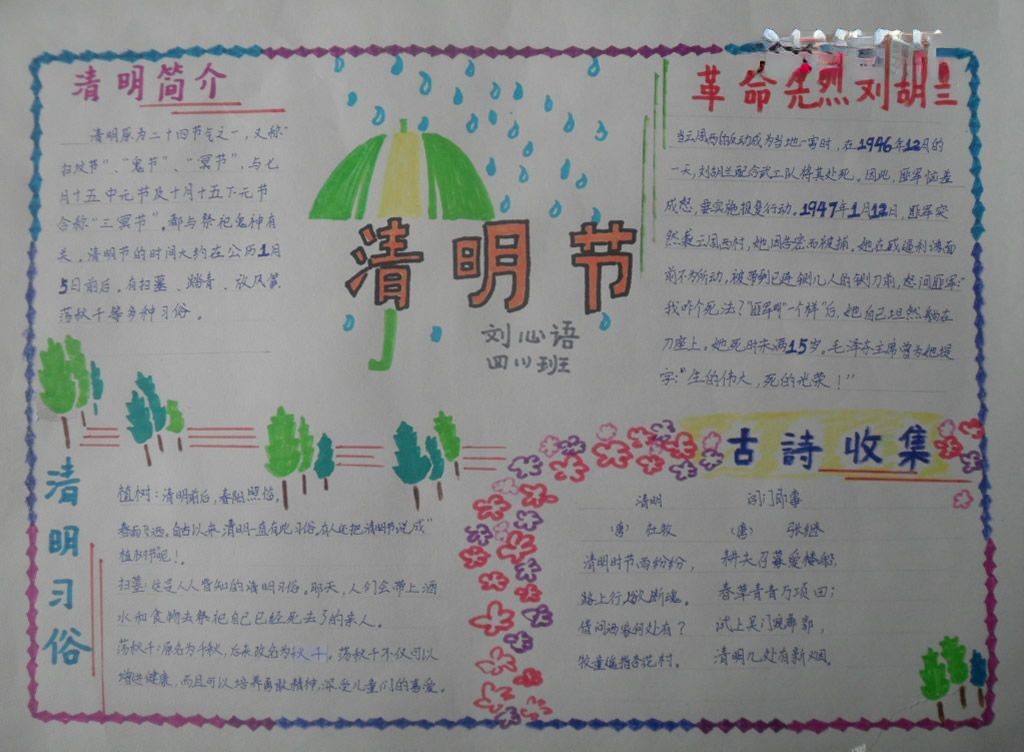 清明简介
清明原为二十四节气之一，又称"
扫坟节"、"鬼节"、"冥节"，与七
月十五中元节及十月十五下元节
合称"三冥节"。都与祭祀鬼神有
关。清明节的时间大约在公历1月
5日前后。有扫墓、踏青、放风筝
荡秋千等多种习俗。
清明节
刘心语
四(1)班
革命先烈刘胡兰
当云周西的反动成为当地一害时，在1946年12月的
一天，刘胡兰配合武工队将其处死。因此，匪军恼羞
成怒，要实施报复行动。1947年1月12日，匪军突
然袭云周西村，她因告密而被捕。她在威逼利诱面
前不为所动，被带到已连铡几人的铡刀前，怒问匪军:"
我咋个死法？"匪军吼"一个样"后，她自己坦然躺在
刀座上。她死时未满15岁。毛泽东主席曾为她提
字:"生的伟大，死的光荣！"
清明习俗
植树：清明前后，春阳照临，
春雨飞洒。自古以来，清明一直有此习俗。有人还把清明节说成"
植树节"呢！
扫墓：这是人人皆知的清明习俗。那天，人们会带上酒
水和食物去祭祀自己已经死去了的亲人。
荡秋千：原名为千秋，后来改名为秋千。荡秋千不仅可以
增进健康，而且可以培养勇敢精神，深受儿童们的喜爱。
古詩收集
清明
（唐） 杜牧
清明时节雨纷纷，
路上行人欲断魂。
借问酒家何处有？
牧童遥指杏花村。
闾门即事
（唐） 张继
耕夫召募爱楼船，
春草青青万项田；
试上吴门窥郡郭，
清明几处有新烟。